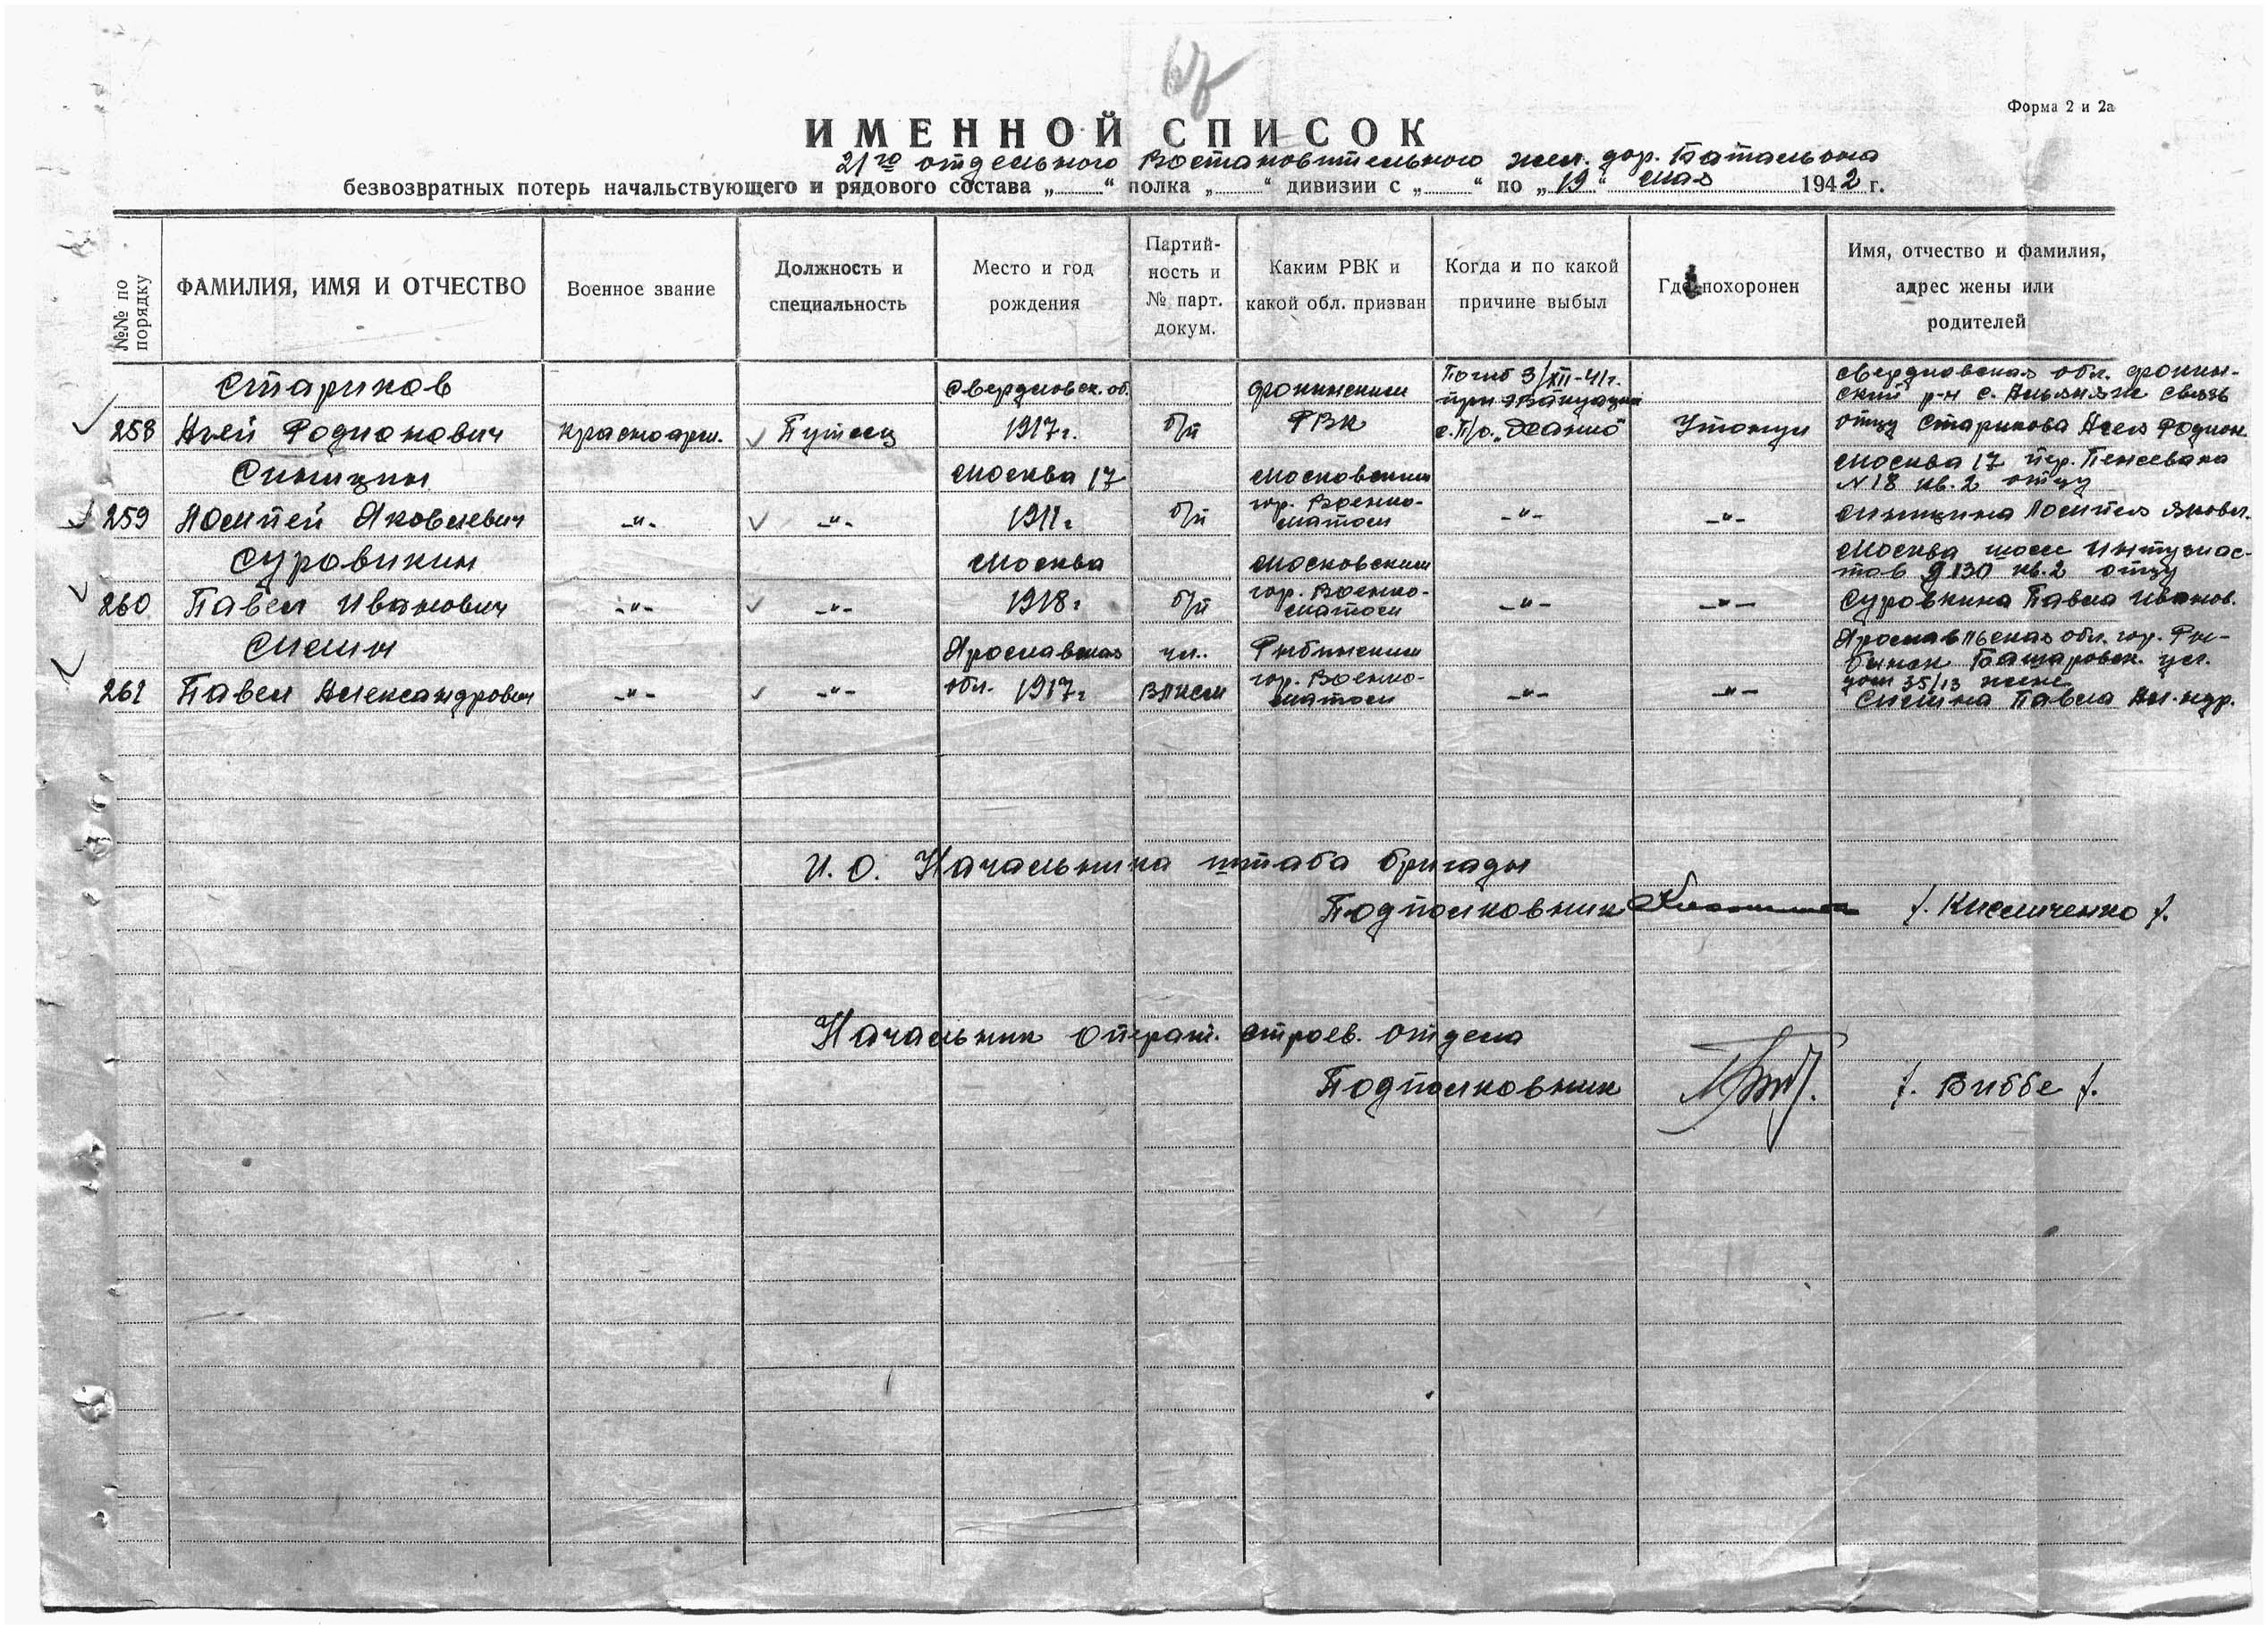 Форма 2 и 2а
ИМЕННОЙ СПИСОК
21го отдельного Востановительного жел. дор. Батальона
безвозвратных потерь начальствующего и рядового состава „ “ полка „ “ дивизии с „ “ по „19“ мая 1942 г.
№№ по порядку
ФАМИЛИЯ, ИМЯ И ОТЧЕСТВО
Военное звание
Должность и специальность
Место и год рождения
Партий-ность и № парт. докум.
Каким РВК и какой обл. призван
Когда и по какой причине выбыл
Где похоронен
Имя, отчество и фамилия, адрес жены или родителей
258
Стариков
Алей Родионович
Красноарм.
Путеец
Свердловск. об.
1917г.
б/п
РВК
Погиб 3/XII-41г.
при эвакуации
с. П/о. „Ханко“
Утонул
Свердловская обл.
отцу Старикова Алея Родион.
259
Синицин
Яковлевич
-"-
-"-
Москва 17
1911г
б/п
Московским
гор. Военко-
матом
-"-
-"-
Москва 17 пер.
N 18 кв. 2 отцу
Синицина
260
Суровикин
Павел Иванович
-"-
-"-
Москва
1918г
б/п
Московским
гор. Военко-
матом
-"-
-"-
Москва шоссе Интузиас-
тов д 130 кв. 2 отцу
Суровкина Павла Иванов.
261
Смелин
Павел Александрович
-"-
-"-
Ярославская
обл. 1917г
чл.
ВЛКСМ
Рыбинским
гор. Военко-
матом
-"-
-"-
Ярославльская обл. гор. Ры-
бинск
дом 35/13 жене
Павла
И. О. Начальника штаба бригады
Подполковник /. Кисличенко /.
Начальник операт. строев. отдела
Подполковник /. Виббе /.